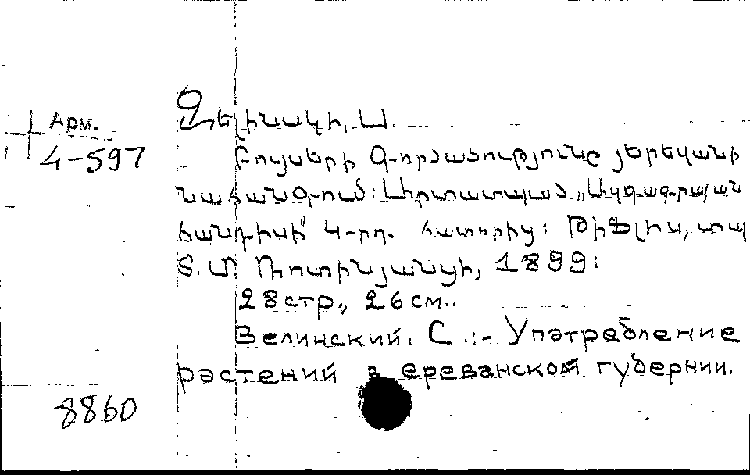 Арм.
4-597
Զելինսկի, Ս.
Բույսերի Գործածությունը յերեվանի
նահանգում: Արտատպած „Ազգագրական
հանդիսի" 4-րդ. հատորից: Թիֆլիս, տպ
Տ. Մ Ռոտինյանցի, 1899:
28 стр., 26 см..
Зелинский. С. :- Употребление
растений в ереванской губернии.
8860